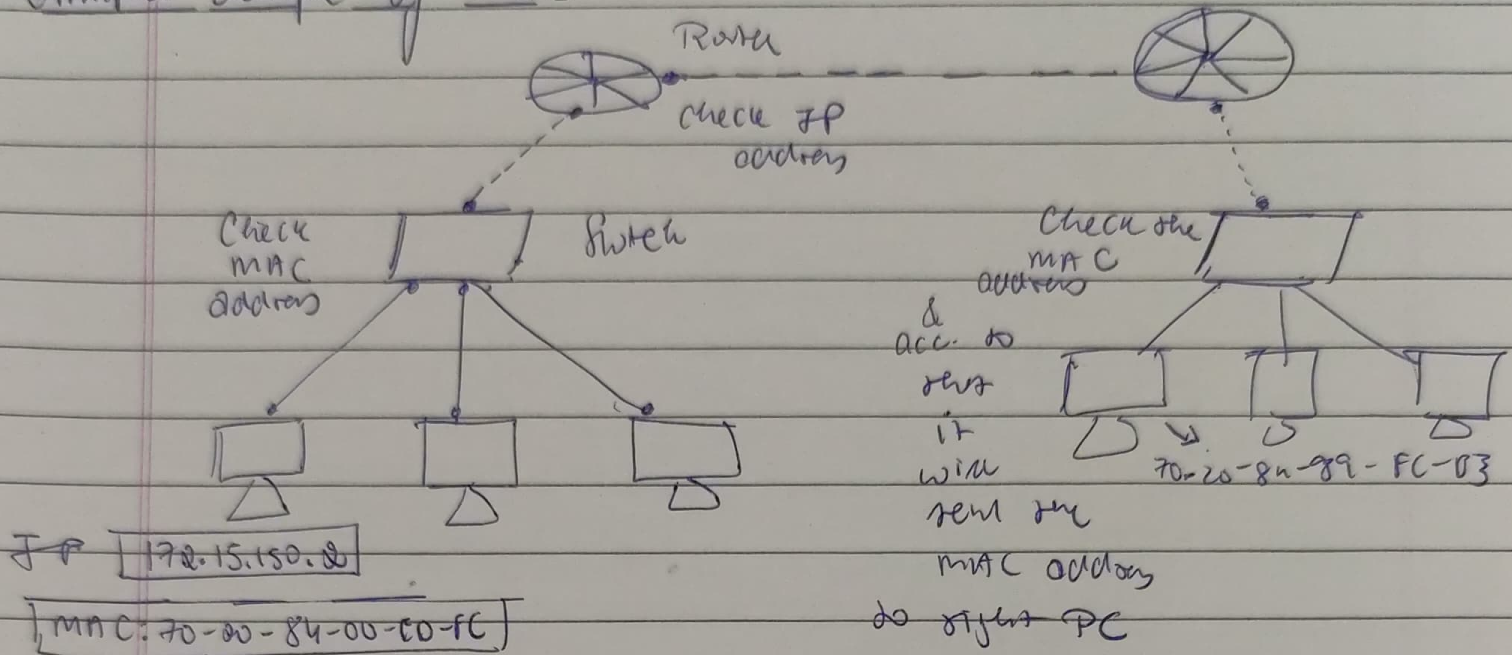 Router
Check IP
address
Check
MAC
address
Switch
Check the
MAC
address
&
acc. to
that
it
will
send the
MAC address
to right PC
70-20-84-89-FC-03
IP 172.15.150.2
MAC: 70-20-84-00-C0-FC